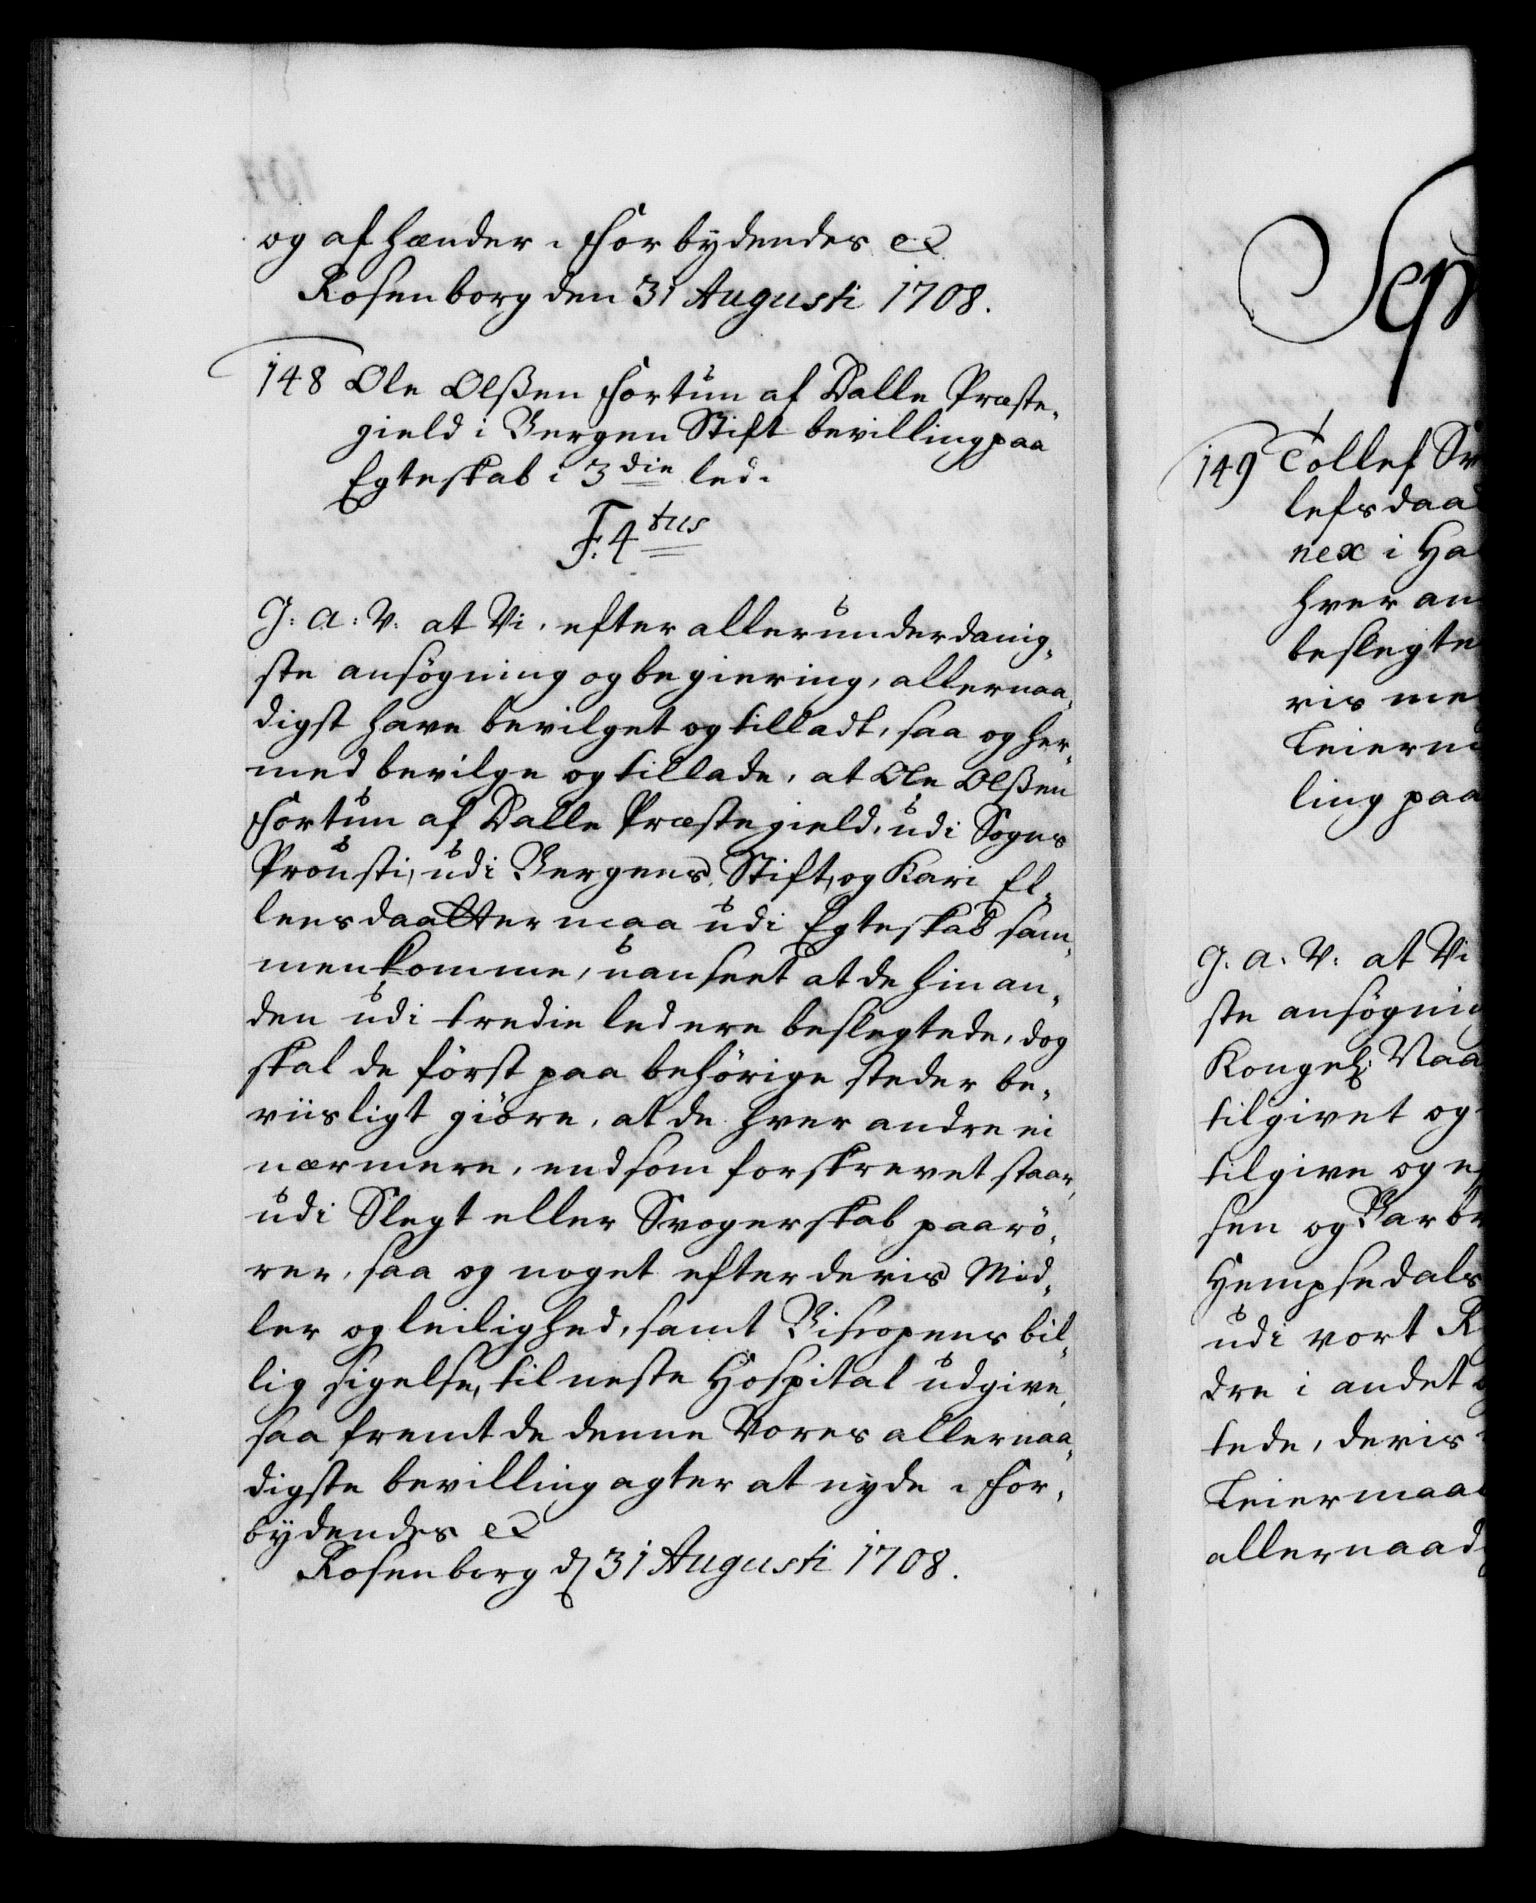 og afhænder. Forbydendes etc
Rosenborg den 31 Augusti 1708.
148 Ole Olßen Fortun af Dalle Præste-
gield i Bergen Stift bevilling paa
Egteskab i 3die led.
F. 4tus
G: A: V: at Vi, efter allerunderdanig-
ste ansøgning og begiering, allernaa-
digst have bevilget og tilladt, saa og her-
med bevilge og tillade, at Ole Olßen
Fortun af Dalle Præstegield, udi Sogns
Prousti, udi Bergens Stift, og Kari El-
lensdaatter maa udi Egteskab sam-
menkomme, uanseet at de hinan-
den udi tredie led ere beslegtede, dog
skal de først paa behørige steder be-
viisligt giøre, at de hver andre ei
nærmere, end som forskrevet staar,
udi Slegt eller Svogerskab paarø-
rer, saa og noget efter deris Mid-
ler og leilighed, samt Biscopens bil-
lig sigelse, til neste Hospital udgive,
saa fremt de denne Vores allernaa-
digste bevilling agter at nyde. For-
bydendes etc
Rosenborg d 31 Augusti 1708.
Sep
149 Tollef Sv
lefsdaa
nex i Ha
hver an
beslegte
ris me
Leierm
ling paa
G. A. V: at Vi
ste ansøgni
Kongel: Naa
tilgivet og
tilgive og e
sen og Barbr
Hempsedals
udi vort R
dre i andet
tede, deris
Leiermaa
allernaad